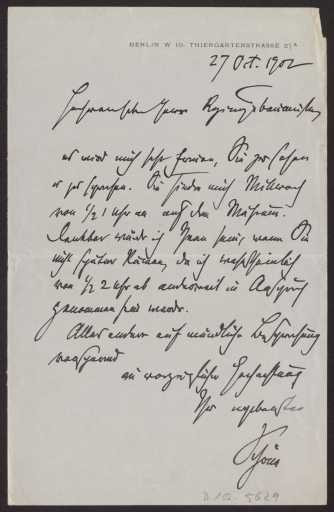 BERLIN W 10. THIERGARTENSTRASSE 21A
27 Oct. 1902
Hochverehrter Herr Regierungsbaumeister,
es wird mich sehr freuen, Sie zu sehen
u zu sprechen. Sie finden mich Mittwoch
von 1/2 1 Uhr an auf dem Museum.
Dankbar würde ich Ihnen sein, wenn Sie
nicht später kämen, da ich wahrscheinlich
von 1/2 2 Uhr ab anderweit in Anspruch
genommen sein werde.
Alles andere auf mündliche Besprechung
versparend
in vorzüglicher Hochachtung
Ihr ergebenster
Schöne